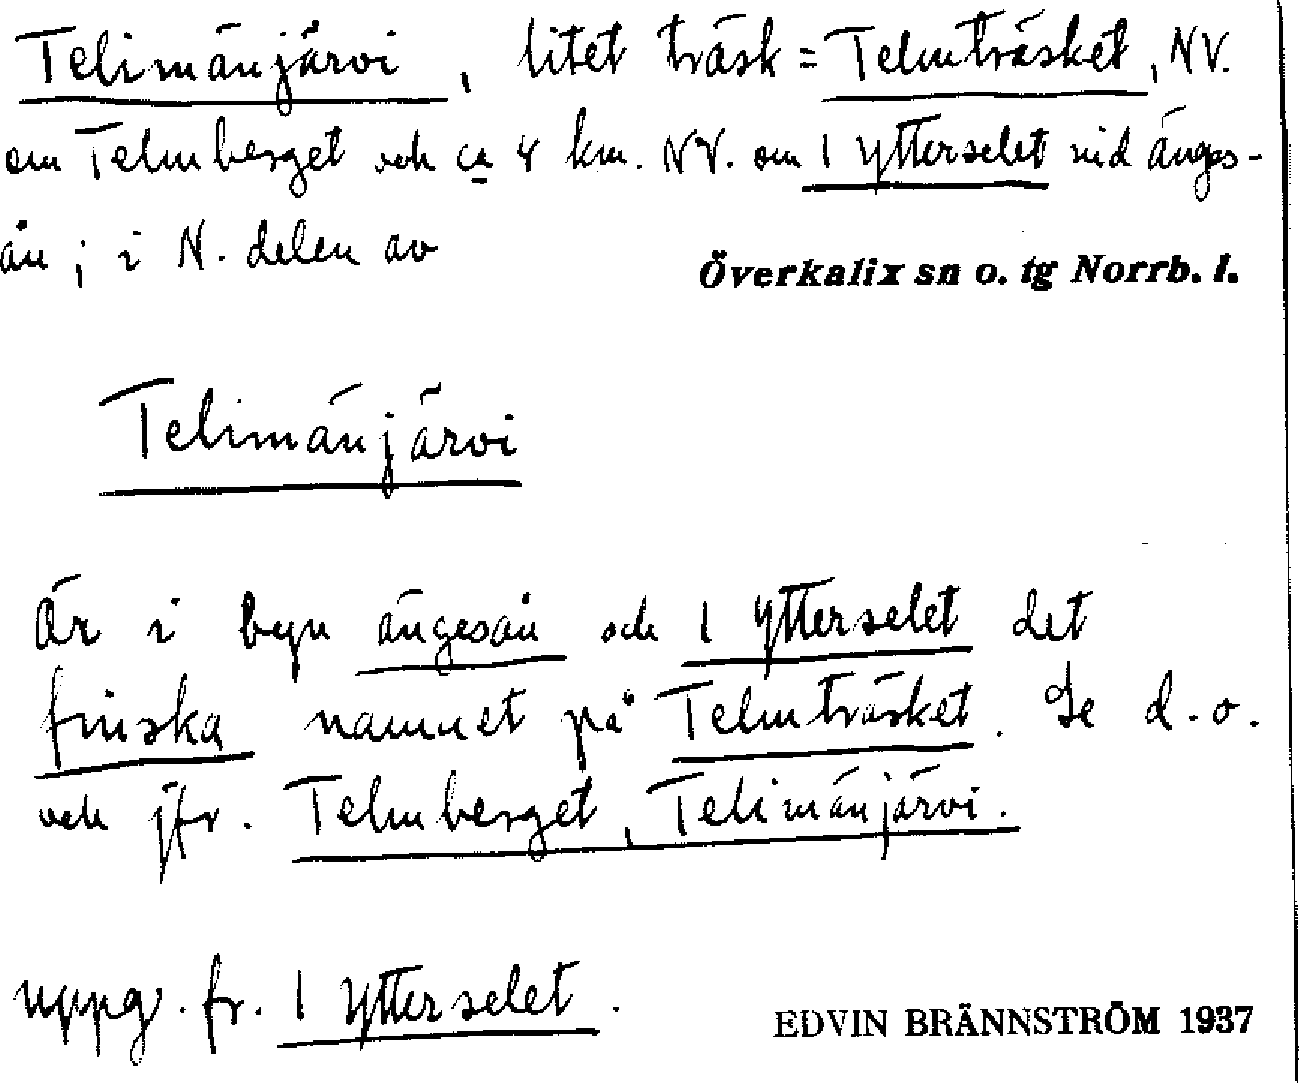 Telimänjärvi, litet träsk = Telmträsket, NV.
om Telmberget och ca 4 km. NV. om 1 Ytterselet vid änges-
ån; i N. delen av
Överkalix sn o. tg Norrb. l.
Telimänjärvi
Är i byn ängesån och 1 Ytterselet det
finska namnet på Telmträsket. Se d.o.
och jfr. Telmberget, Telimänjärvi.
uppg. fr. 1 Ytterselet.
EDVIN BRÄNNSTRÖM 1937